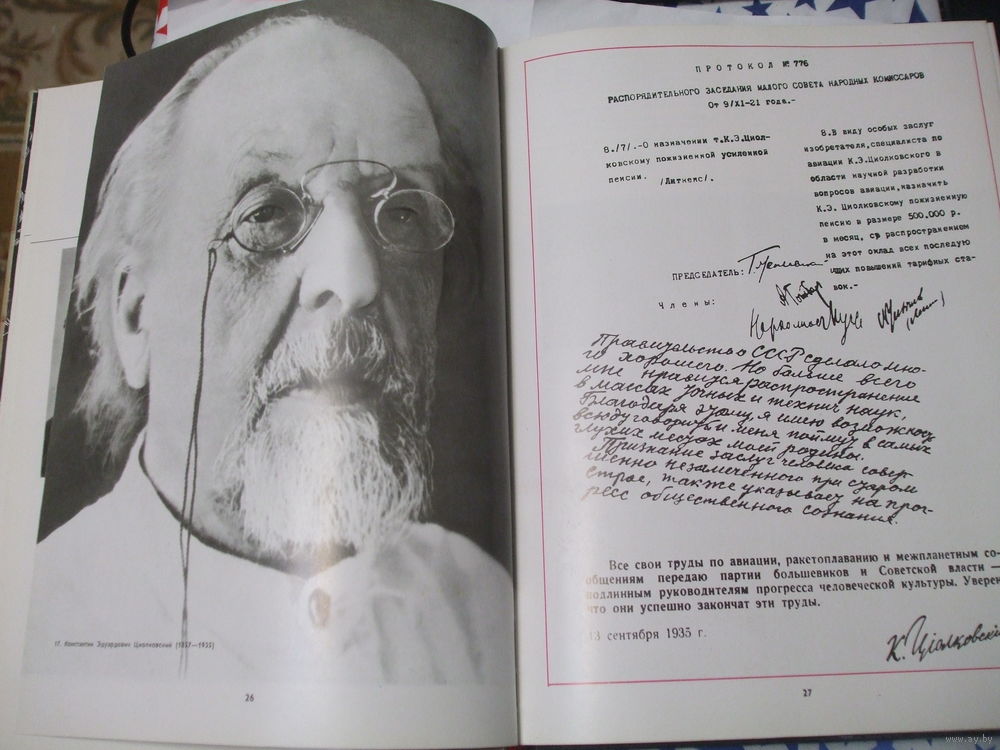 17. Константин Эдуардович Циолковский (1857—1935)
26
ПРОТОКОЛ № 776
РАСПОРЯДИТЕЛЬНОГО ЗАСЕДАНИЯ МАЛОГО СОВЕТА НАРОДНЫХ КОМИССАРОВ
От 9/XI-21 года.-
8./7/.-О назначении т.К.Э.Циол-
ковскому пожизненной усиленной
пенсии. /Литкенс/.
8.В виду особых заслуг
изобретателя,специалиста по
авиации К.Э.Циолковского в
области научной разработки
вопросов авиации,назначить
К.Э. Циолковскому пожизненную
пенсию в размере 500.000 р.
в месяц, с распространением
на этот оклад всех последую
щих повышений тарифных ста-
вок.-
ПРЕДСЕДАТЕЛЬ:
Члены:
Правительство СССР сделало мно-
го хорошего. Но больше всего
мне нравится распространение
в массах точных и технич наук.
Благодаря этому, я имею возможность
всюду говорить и меня поймут в самых
глухих местах моей родины.
Признание заслуг человека совер-
шенно незамеченного при старом
строе, также указывает на прог-
ресс общественного сознания.
Все свои труды по авиации, ракетоплаванию и межпланетным со-
общениям передаю партии большевиков и Советской власти —
подлинным руководителям прогресса человеческой культуры. Уверен
что они успешно закончат эти труды.
13 сентября 1935 г.
К. Ціолковскій
27
www.ay.by